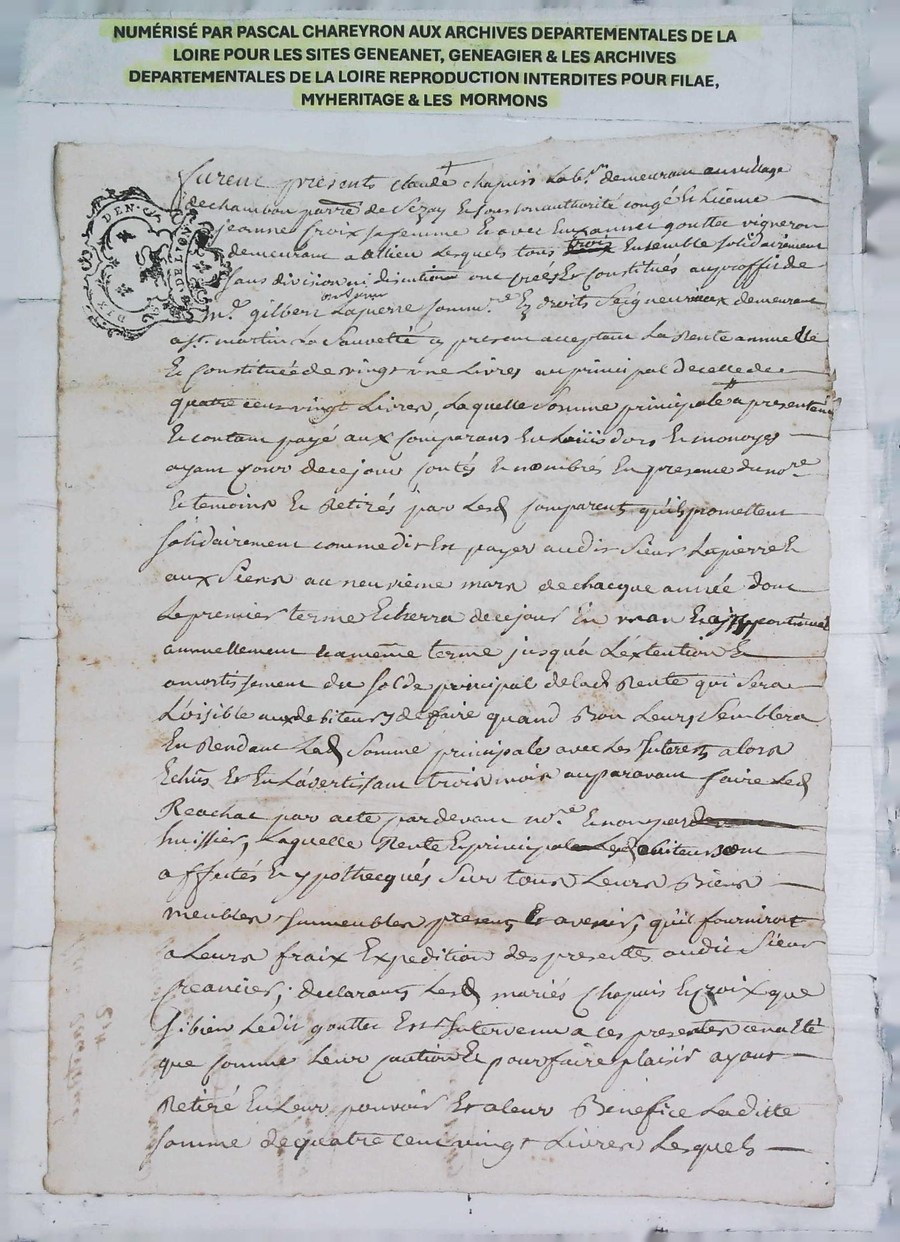 NUMÉRISÉ PAR PASCAL CHAREYRON AUX ARCHIVES DEPARTEMENTALES DE LA
LOIRE POUR LES SITES GENEANET, GENEAGIER & LES ARCHIVES
DEPARTEMENTALES DE LA LOIRE REPRODUCTION INTERDITES POUR FILAE,
MYHERITAGE & LES MORMONS
DEN
DIX
furent présents claude chapuis Lab.r demeurant au village
de chambon parr.e de Sezay Et sous son authorité congé Et licence
jeanne Croix sa femme Et avec Eux annet gouttet vigneron
demeurant a allieu Lesquels tous Ensemble solidairement
sans division ni discution ont créés Et constitués au proffit de
m.e gilbert Lapierre comm.re En droits Seigneuriaux demeurant
a st. martin La Sauveté cy present acceptant La Rente annuelle
Et constituée de vingt une Livres au principal de celle de
quatre cent vingt Livres, Laquelle Somme principale a présentem
Et contant payé aux comparans En Loüis dors Et monoyes
ayant cour de ce jour contés Et nombrés En presence du no.re
Et temoins Et Retirés par Lesd comparents qu'ils promettent
solidairement comme dit Est payer audit Sieur Lapierre Et
aux Siens au neuvième mars de chacque année dont
Le premier terme Echerra de ce jour En un an Et continuer
annuellement a a même terme jusqu'a L'extention Et
amortissement du solde principal de lad Rente qui Sera
Loisible aux debiteurs de faire quand Bon Leurs Semblera
En Rendant Lad Somme principale avec Les Interets alors
Echus Et En L'avertissant trois mois auparavant faire Led
Reachat par acte pardevant no.re Et non par
huissier, Laquelle Rente Et principal Lesd debiteurs ont
affectés Et ypothecqués Sur tous Leurs Biens
meubles Immeubles presens Et avenir, qu'il fourniront
a Leurs fraix Expedition des presentes audit Sieur
Creancier; declarants Lesd mariés Chapuis Et croix que
si bien Ledit gouttet Est Intervenu a ces presentes ce n'a Eté
que comme Leur caution Et pour faire plaisir ayant
Retiré En Leur pouvoir Et a leur Benefice Laditte
somme de quatre cent vingt Livres Lesquels